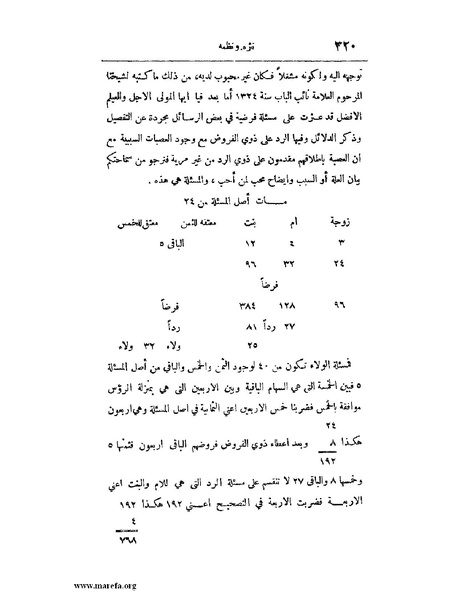 ٣٢٠ نثره ونظمه
توجهه اليه ولكونه مثقلاً فكان غير محبوب لديه، من ذلك ما كتبه لشيخنا
المرحوم العلامة نائب الباب سنة ١٣٢٤ أما بعد فيا ايها المولى الاجل والعيلم
الافضل قد عثرت على مسئلة فرضية في بعض الرسائل مجردة عن التفصيل
وذكر الدلائل وفيها الرد على ذوي الفروض مع وجود العصبات السببية مع
ان العصبة باطلاقهم مقدمون على ذوي الرد من غير مرية فنرجو من سماحتكم
بيان العلة أو السبب وايضاح محب لمن أحب ، والمسئلة هي هذه .
مسات أصل المسئلة من ٢٤
زوجة ام بنت معتقه للثمن معتق للخمس
٣ ٤ ١٢ الباقى ٥
٢٤ ٣٢ ٩٦
فرضاً
٩٦ ١٢٨ ٣٨٤ فرضاً
٢٧ رداً ٨١ رداً
٢٥ ولاء ٣٢ ولاء
فمسئلة الولاء تتكون من ٤٠ لوجود الثمن والخمس والباقي من أصل المسئلة
٥ فبين الخمسة التى هي السهام الباقية وبين الاربعين التى هي بمنزلة الرؤس
موافقة بالخمس فضربنا خمس الاربعين اعني الثمانية في اصل المسئلة وهي اربعون
٢٤
هكذا ٨ وبعد اعطاء ذوي الفروض فروضهم الباقى اربعون فثمنها ٥
١٩٢
وخمسها ٨ والباقى ٢٧ لا تنقسم على مسئلة الرد التى هي للام والبنت اعني
الاربعة فضربت الاربعة في التصحيح اعني ١٩٢ هكذا ١٩٢
٤
٧٦٨
www.marefa.org